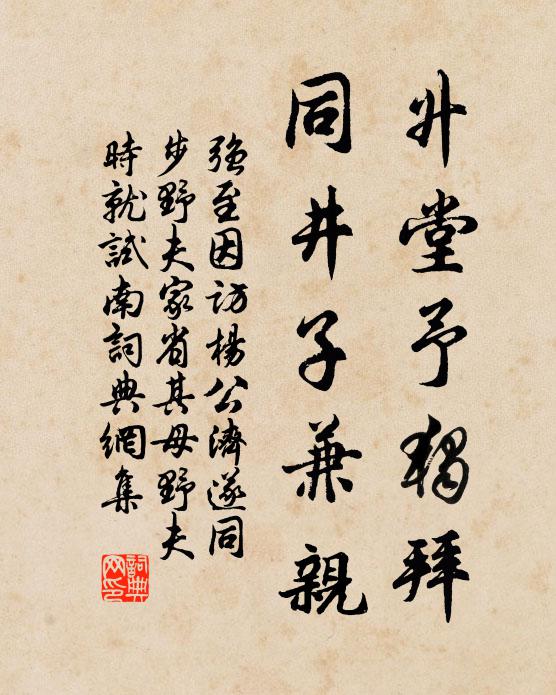 升堂予獨拜
同井子兼親
強至因訪楊公濟遂同
步野夫家省其母野夫
時就試南詞典網集
詞典网印